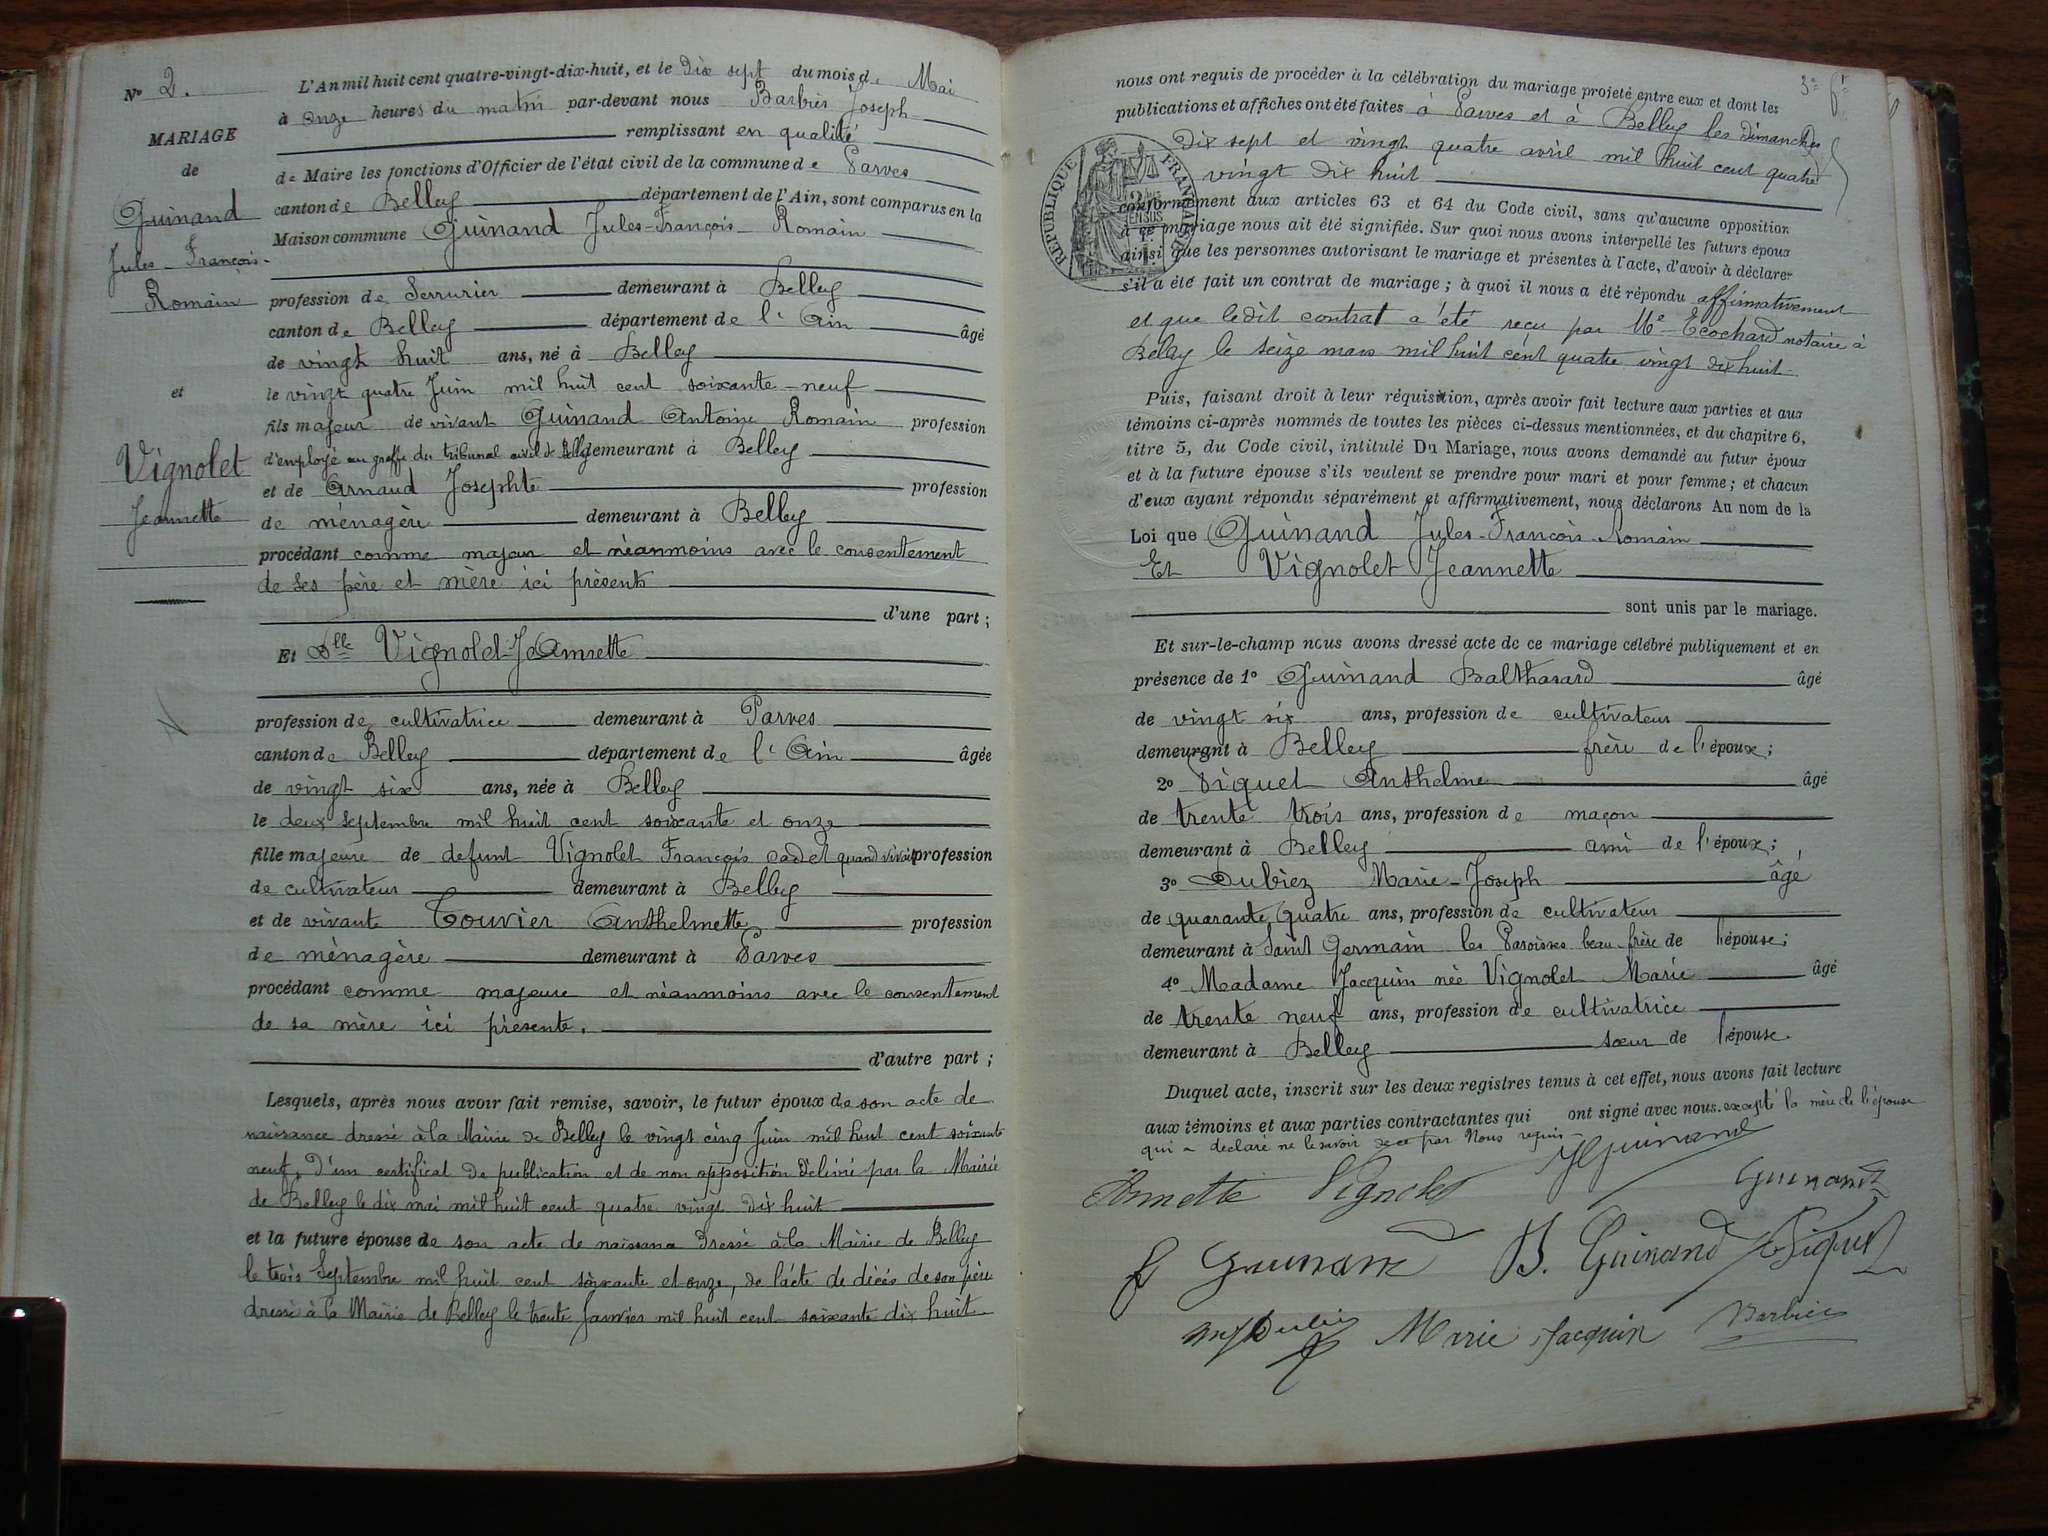 No 2.
MARIAGE
de
Guinand
Jules-François-
Romain
et
Vignolet
Jeannette
L'An mil huit cent quatre-vingt-dix-huit, et le Dix sept du mois de Mai
à onze heures du matin par-devant nous Barbier Joseph
remplissant en qualité
de Maire les fonctions d'Officier de l'état civil de la commune de Parves
canton de Belley département de l'Ain, sont comparus en la
Maison commune Guinand Jules-François-Romain
profession de Serrurier demeurant à Belley
canton de Belley département de l'Ain âgé
de vingt huit ans, né à Belley
le vingt quatre Juin mil huit cent soixante-neuf
fils majeur de vivant Guinand Antoine Romain profession
d'employé au greffe du tribunal civil de Belley demeurant à Belley
et de Arnaud Josephte profession
de ménagère demeurant à Belley
procédant comme majeur et néanmoins avec le consentement
de ses père et mère ici présents
d'une part ;
Et Dlle Vignolet Jeannette
profession de cultivatrice demeurant à Parves
canton de Belley département de l'Ain âgée
de vingt six ans, née à Belley
le deux septembre mil huit cent soixante et onze
fille majeure de defunt Vignolet François cadet quand vivait profession
de cultivateur demeurant à Belley
et de vivante Touvier Anthelmette profession
de ménagère demeurant à Parves
procédant comme majeure et néanmoins avec le consentement
de sa mère ici présente.
d'autre part ;
Lesquels, après nous avoir fait remise, savoir, le futur époux de son acte de
naissance dressé à la Mairie de Belley le vingt cinq Juin mil huit cent soixante
neuf, d'un certificat de publication et de non opposition délivré par la Mairie
de Belley le dix mai mil huit cent quatre vingt dix huit
et la future épouse de son acte de naissance dressé à la Mairie de Belley
le trois Septembre mil huit cent soixante et onze, de l'acte de décès de son père
dressé à la Mairie de Belley le trente Janvier mil huit cent soixante dix huit
3e ft
nous ont requis de procéder à la célébration du mariage projeté entre eux et dont les
publications et affiches ont été faites à Parves et à Belley les dimanches
Dix sept et vingt quatre avril mil huit cent quatre
vingt dix huit
REPUBLIQUE FRANÇAISE
conformément aux articles 63 et 64 du Code civil, sans qu'aucune opposition
à ce mariage nous ait été signifiée. Sur quoi nous avons interpellé les futurs époux
ainsi que les personnes autorisant le mariage et présentes à l'acte, d'avoir à déclarer
s'il a été fait un contrat de mariage ; à quoi il nous a été répondu affirmativement
et que ledit contrat a été reçu par Me Ecochard notaire à
Belley le seize mars mil huit cent quatre vingt dix huit
Puis, faisant droit à leur réquisition, après avoir fait lecture aux parties et aux
témoins ci-après nommés de toutes les pièces ci-dessus mentionnées, et du chapitre 6,
titre 5, du Code civil, intitulé Du Mariage, nous avons demandé au futur époux
et à la future épouse s'ils veulent se prendre pour mari et pour femme ; et chacun
d'eux ayant répondu séparément et affirmativement, nous déclarons Au nom de la
Loi que Guinand Jules-François-Romain
Et Vignolet Jeannette
sont unis par le mariage.
Et sur-le-champ nous avons dressé acte de ce mariage célébré publiquement et en
présence de 1o Guinand Balthasard âgé
de vingt six ans, profession de cultivateur
demeurant à Belley frère de l'époux ;
2o Piquet Anthelme âgé
de trente trois ans, profession de maçon
demeurant à Belley ami de l'époux ;
3o Dubiez Marie-Joseph âgé
de quarante quatre ans, profession de cultivateur
demeurant à Saint Germain les Paroisses beau-frère de l'épouse ;
4o Madame Jacquin née Vignolet Marie âgé
de trente neuf ans, profession de cultivatrice
demeurant à Belley sœur de l'épouse.
Duquel acte, inscrit sur les deux registres tenus à cet effet, nous avons fait lecture
aux témoins et aux parties contractantes qui ont signé avec nous. excepté la mère de l'épouse
qui a declaré ne le savoir de ce par Nous requis
JGuinand
Annette Vignolet
Guinand
Guinand B. Guinand Piquet
Marie Jacquin Barbier